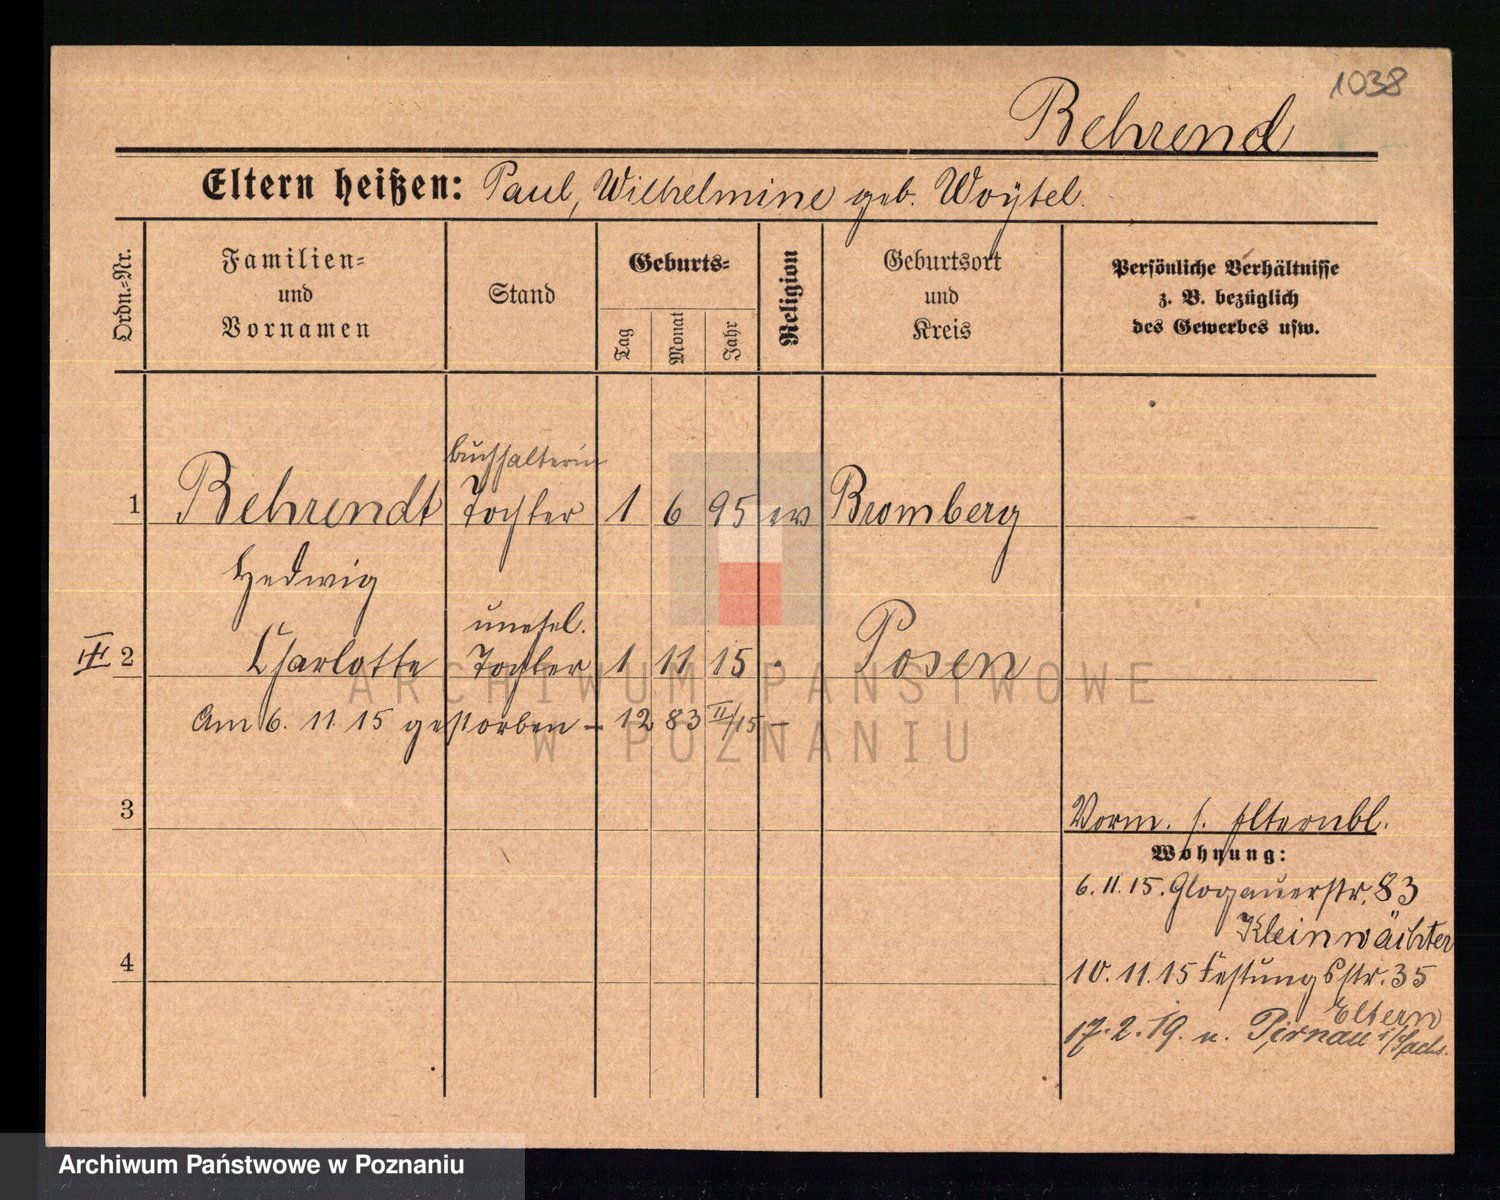 1038
Behrend
Eltern heißen: Paul, Wilhelmine geb. Woÿtel.
Ordn.-Nr.
Familien-
und
Vornamen
Stand
Geburts-
Tag
Monat
Jahr
Religion
Geburtsort
und
Kreis
Persönliche Verhältnisse
z. B. bezüglich
des Gewerbes usw.
Buchhalterin
1 Behrendt Tochter 1 6 95 ev Bromberg
Hedwig
unehel.
2 Charlotte Tochter 1 11 15 " Posen
Am 6. 11 15 gestorben – 1283 II/15 –
3
Vorm. s. Elternbl.
Wohnung:
6. 11. 15. Glogauerstr. 83
Kleinwächter
4
10. 11. 15 Festungsstr. 35
Eltern
17. 2. 19. n. Pirnau i/Sachs.
ARCHIWUM PAŃSTWOWE
W POZNANIU
Archiwum Państwowe w Poznaniu